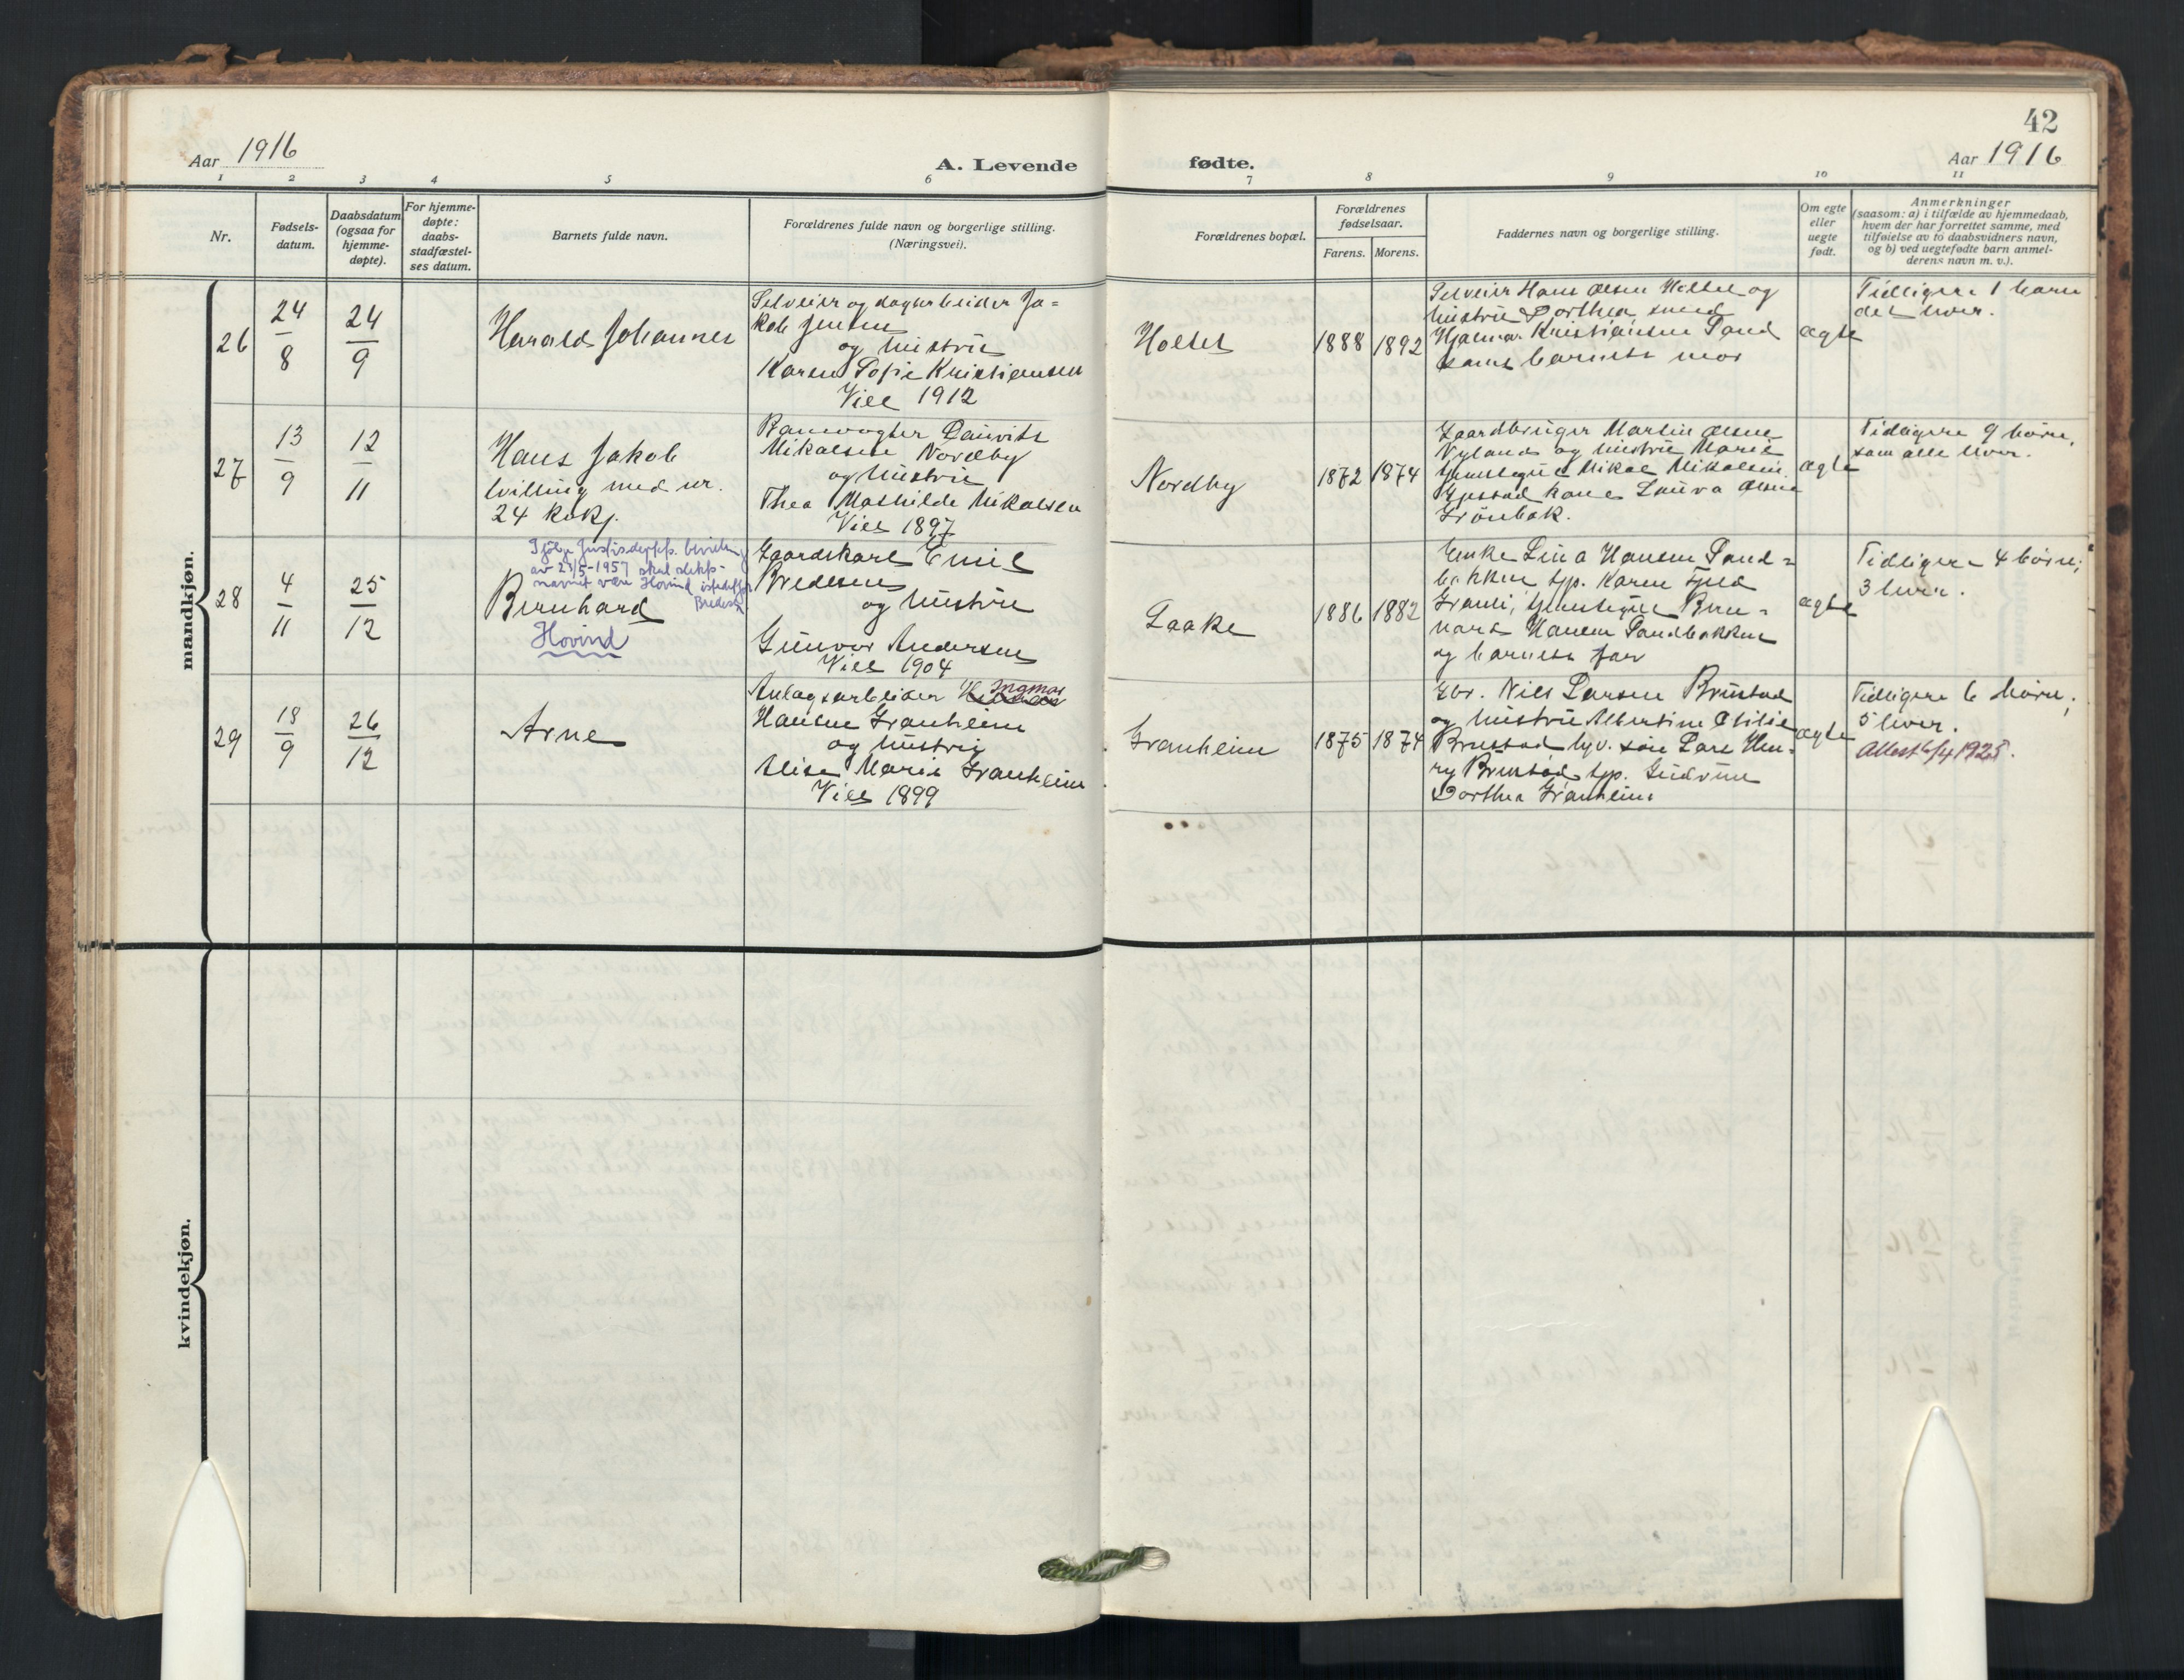 42
Aar 1916
A. Levende fødte.
Aar 1916
1 2 3 4 5 6 7 8 9 10 11
Nr.
Fødsels-
datum.
Daabsdatum
(ogsaa for
hjemme-
døpte).
For hjemme-
døpte:
daabs-
stadfæstel-
ses datum.
Barnets fulde navn.
Forældrenes fulde navn og borgerlige stilling.
(Næringsvei).
Forældrenes bopæl.
Forældrenes
fødselsaar.
Farens. Morens.
Faddernes navn og borgerlige stilling.
Om egte
eller
uegte
født.
Anmerkninger
(saasom: a) i tilfælde av hjemmedaab,
hvem der har forrettet samme, med
tilføielse av to daabsvidners navn,
og b) ved uegtefødte barn anmel-
derens navn m. v.).
mandkjøn.
26
24/8
24/9
Harald Johannes
Selveier og dagarbeider Ja=
kob Jensen
og hustru
Karen Sofie Kristiansen
Viel 1912
Holtet
1888 1892
Selveier Hans Olsen Holtet og
hustru Dorthea, smed
Hjalmar Kristiansen Sand
samt barnets mor
ægte
Tidligere 1 barn
det lever.
27
13/9
12/11
Hans Jakob
tvilling med nr.
24 kvkj.
Banevogter Lauritz
Mikalsen Nordby
og hustru
Thea Mathilde Mikalsen
Viel 1897
Nordby
1872 1874
Gaardbruger Martin Olsen
Nyland og hustru Marie
Ungkar Mikal Mikalsen
kone Laura Olsen
Grønbak.
ægte
Tidligere 9 børn,
som alle lever.
28
4/11
25/12
Ifølge Justisdepts. bevilling
av 23/5-1957 skal slekts-
navnet være Hovind istedetfor
Bredesen
Bernhard
Hovind
Gaardskarl Emil
Bredesen
og hustru
Gunvor Andersen
Viel 1904
Laake
1886 1882
Enke Lina Hansen Sand=
bakken, tjp. Karen Fjeld
Granli, Bern=
hard Hansen Sandbakken
og barnets far
ægte
Tidligere 4 børn;
3 lever.
29
18/9
26/12
Arne
Anlægsarbeider Ingmar
Hansen Granheim
og hustru
Alise Marie Granheim
Viel 1899
Granheim
1875 1874
Gbr. Nils Larsen Brustad
og hustru Albertine Otilie
Brustad hjv. søn Lars Hen=
ry Brustad tjp. Gudrun
Dorthea Granheim
ægte
Tidligere 6 børn;
5 lever.
Attest 6/4 1925.
kvindekjøn.